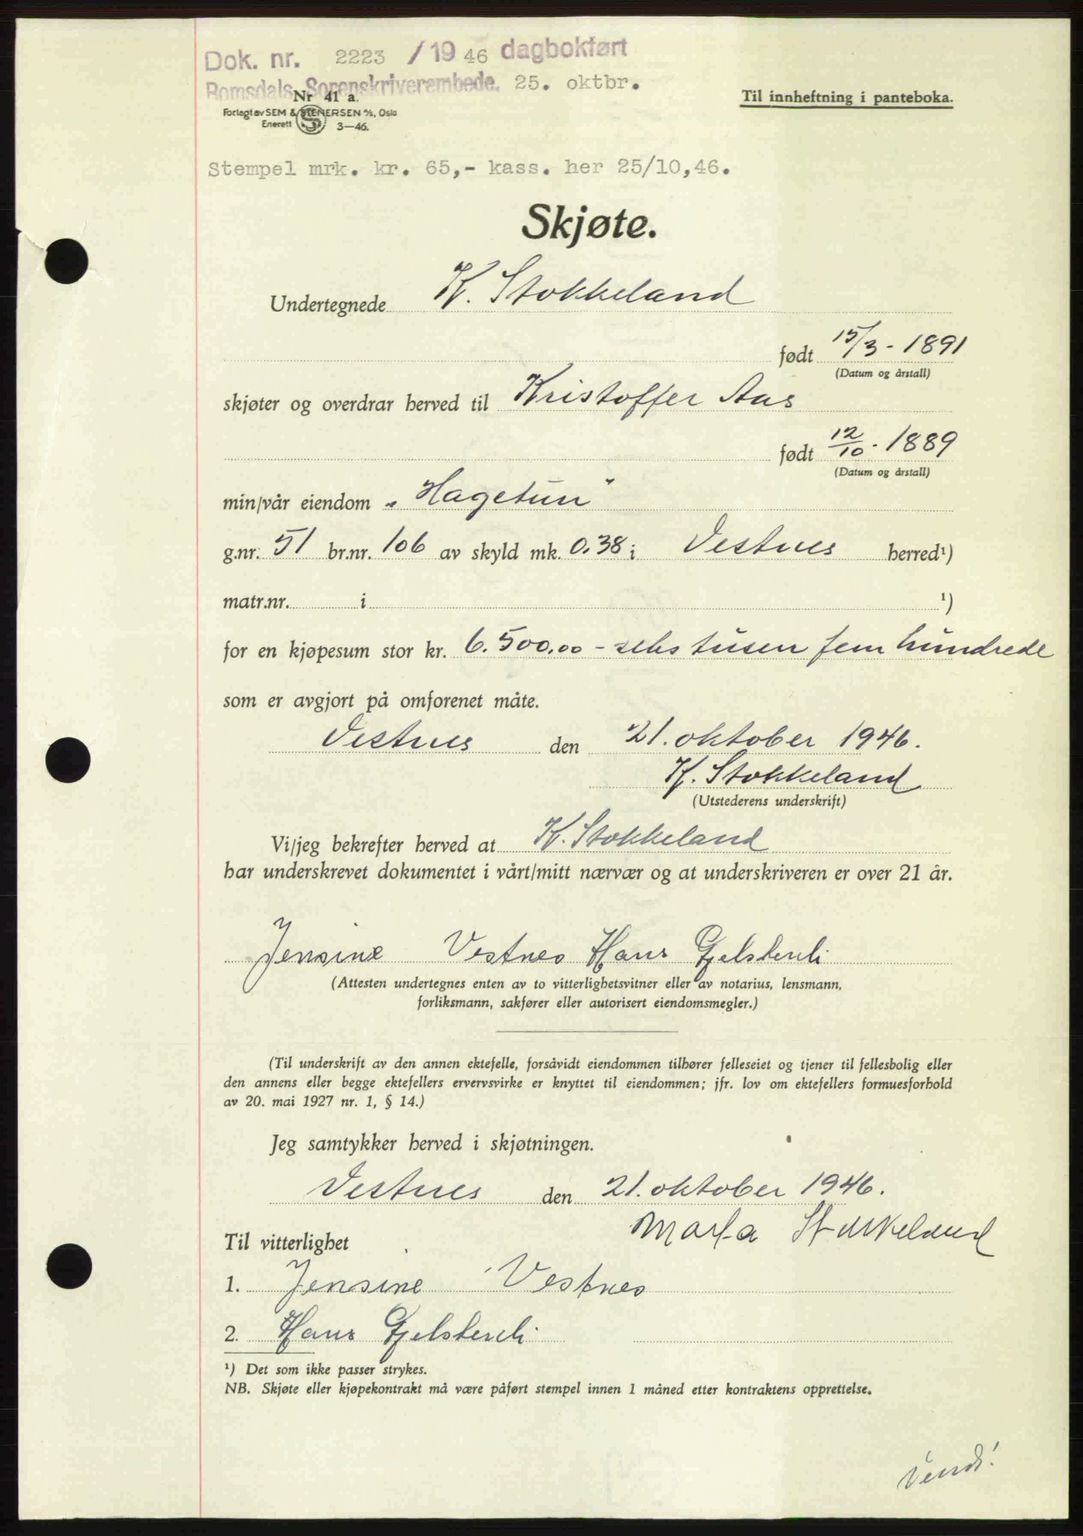 Dok. nr. 2223 / 19 46 dagbokført
Romsdals Sorenskriverembede. 25. oktbr.
Nr 41 a.
Til innheftning i panteboka.
Forlagt av SEM & STENERSEN A/S, Oslo
Enerett S 3—46.
Stempel mrk. kr. 65,- kass. her 25/10,46.
Skjøte.
Undertegnede K. Stokkeland
født 15/3 - 1891
(Datum og årstall)
skjøter og overdrar herved til Kristoffer Aas
født 12/10 - 1889
(Datum og årstall)
min/vår eiendom „Hagetun"
g.nr. 51 br.nr. 106 av skyld mk. 0.38 i Vestnes herred¹)
matr.nr. i ¹)
for en kjøpesum stor kr. 6.500.00 - seks tusen fem hundrede
som er avgjort på omforenet måte.
Vestnes den 21. oktober 1946.
K. Stokkeland
(Utstederens underskrift)
Vi/jeg bekrefter herved at K. Stokkeland
har underskrevet dokumentet i vårt/mitt nærvær og at underskriveren er over 21 år.
Jensine Vestnes Hans
(Attesten undertegnes enten av to vitterlighetsvitner eller av notarius, lensmann,
forliksmann, sakfører eller autorisert eiendomsmegler.)
(Til underskrift av den annen ektefelle, forsåvidt eiendommen tilhører felleseiet og tjener til fellesbolig eller
den annens eller begge ektefellers ervervsvirke er knyttet til eiendommen; jfr. lov om ektefellers formuesforhold
av 20. mai 1927 nr. 1, § 14.)
Jeg samtykker herved i skjøtningen.
Vestnes den 21. oktober 1946.
Marta Stokkeland
Til vitterlighet
1. Jensine Vestnes
2. Hans
¹) Det som ikke passer strykes.
NB. Skjøte eller kjøpekontrakt må være påført stempel innen 1 måned etter kontraktens opprettelse.
Vend!